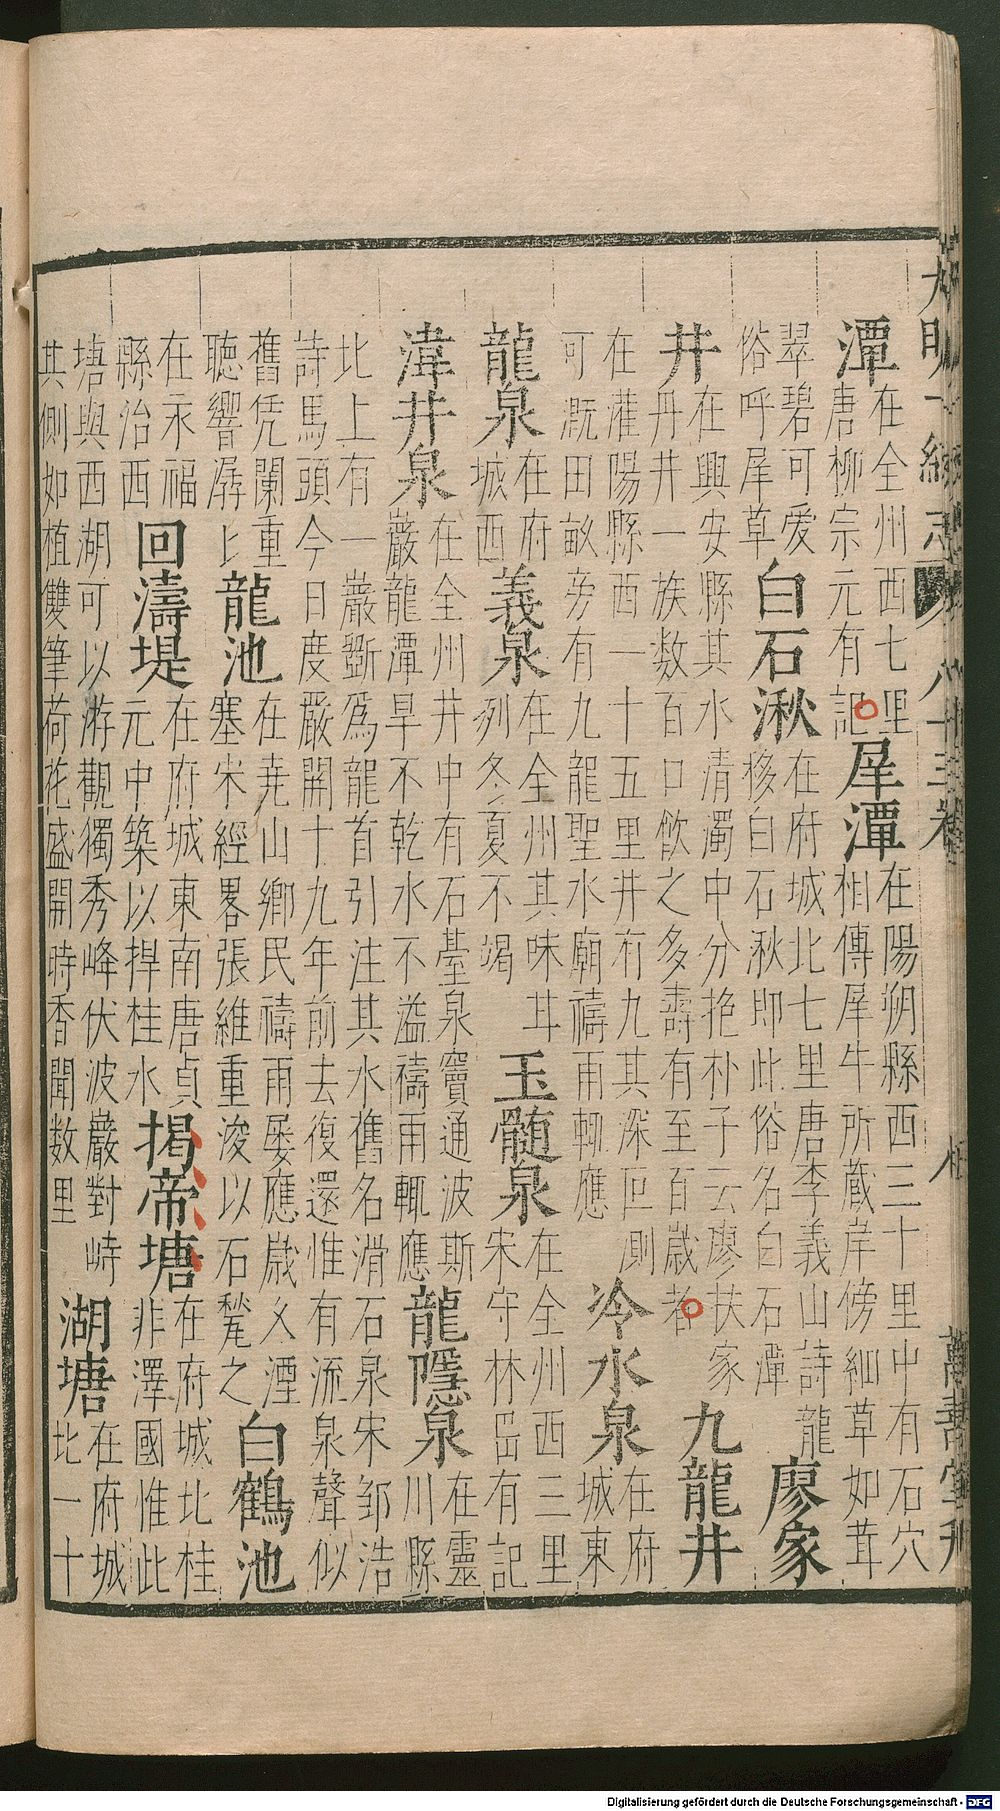 大明一統志 八十三卷 萬壽堂刊
潭 在全州西七里
唐柳宗元有記 犀潭 在陽朔縣西三十里中有石穴
相傳犀牛所藏岸傍細草如茸
翠碧可愛
俗呼犀草 白石湫 在府城北七里唐李義山詩龍
移白石湫即此俗名白石潭 廖家
井 在興安縣其水清濁中分抱朴子云廖扶家
丹井一族数百口飲之多壽有至百歲者 九龍井
在灌陽縣西一十五里井有九其深叵測
可溉田畝旁有九龍聖水廟禱雨輒應 冷水泉 在府
城東
龍泉 在府
城西 義泉 在全州其味甘
冽冬夏不竭 玉髓泉 在全州西三里
宋守林岊有記
湋井泉 在全州井中有石臺泉竇通波斯
巖龍潭旱不乾水不溢禱雨輒應 龍隱泉 在靈
川縣
北上有一巖斵爲龍首引注其水舊名滑石泉宋鄒浩
詩馬頭今日度嚴開十九年前去復還惟有流泉聲似
舊凭闌重
聽響潺匕 龍池 在堯山鄉民禱雨屡應歲久湮
塞宋經畧張維重浚以石甃之 白鶴池
在永福
縣治西 回濤堤 在府城東南唐貞
元中築以捍桂水 揭帝塘 在府城北桂
非澤國惟此
塘與西湖可以游觀獨秀峰伏波巖對峙
其側如植雙筆荷花盛開時香聞数里 湖塘 在府城
北一十
Digitalisierung gefördert durch die Deutsche Forschungsgemeinschaft - DFG